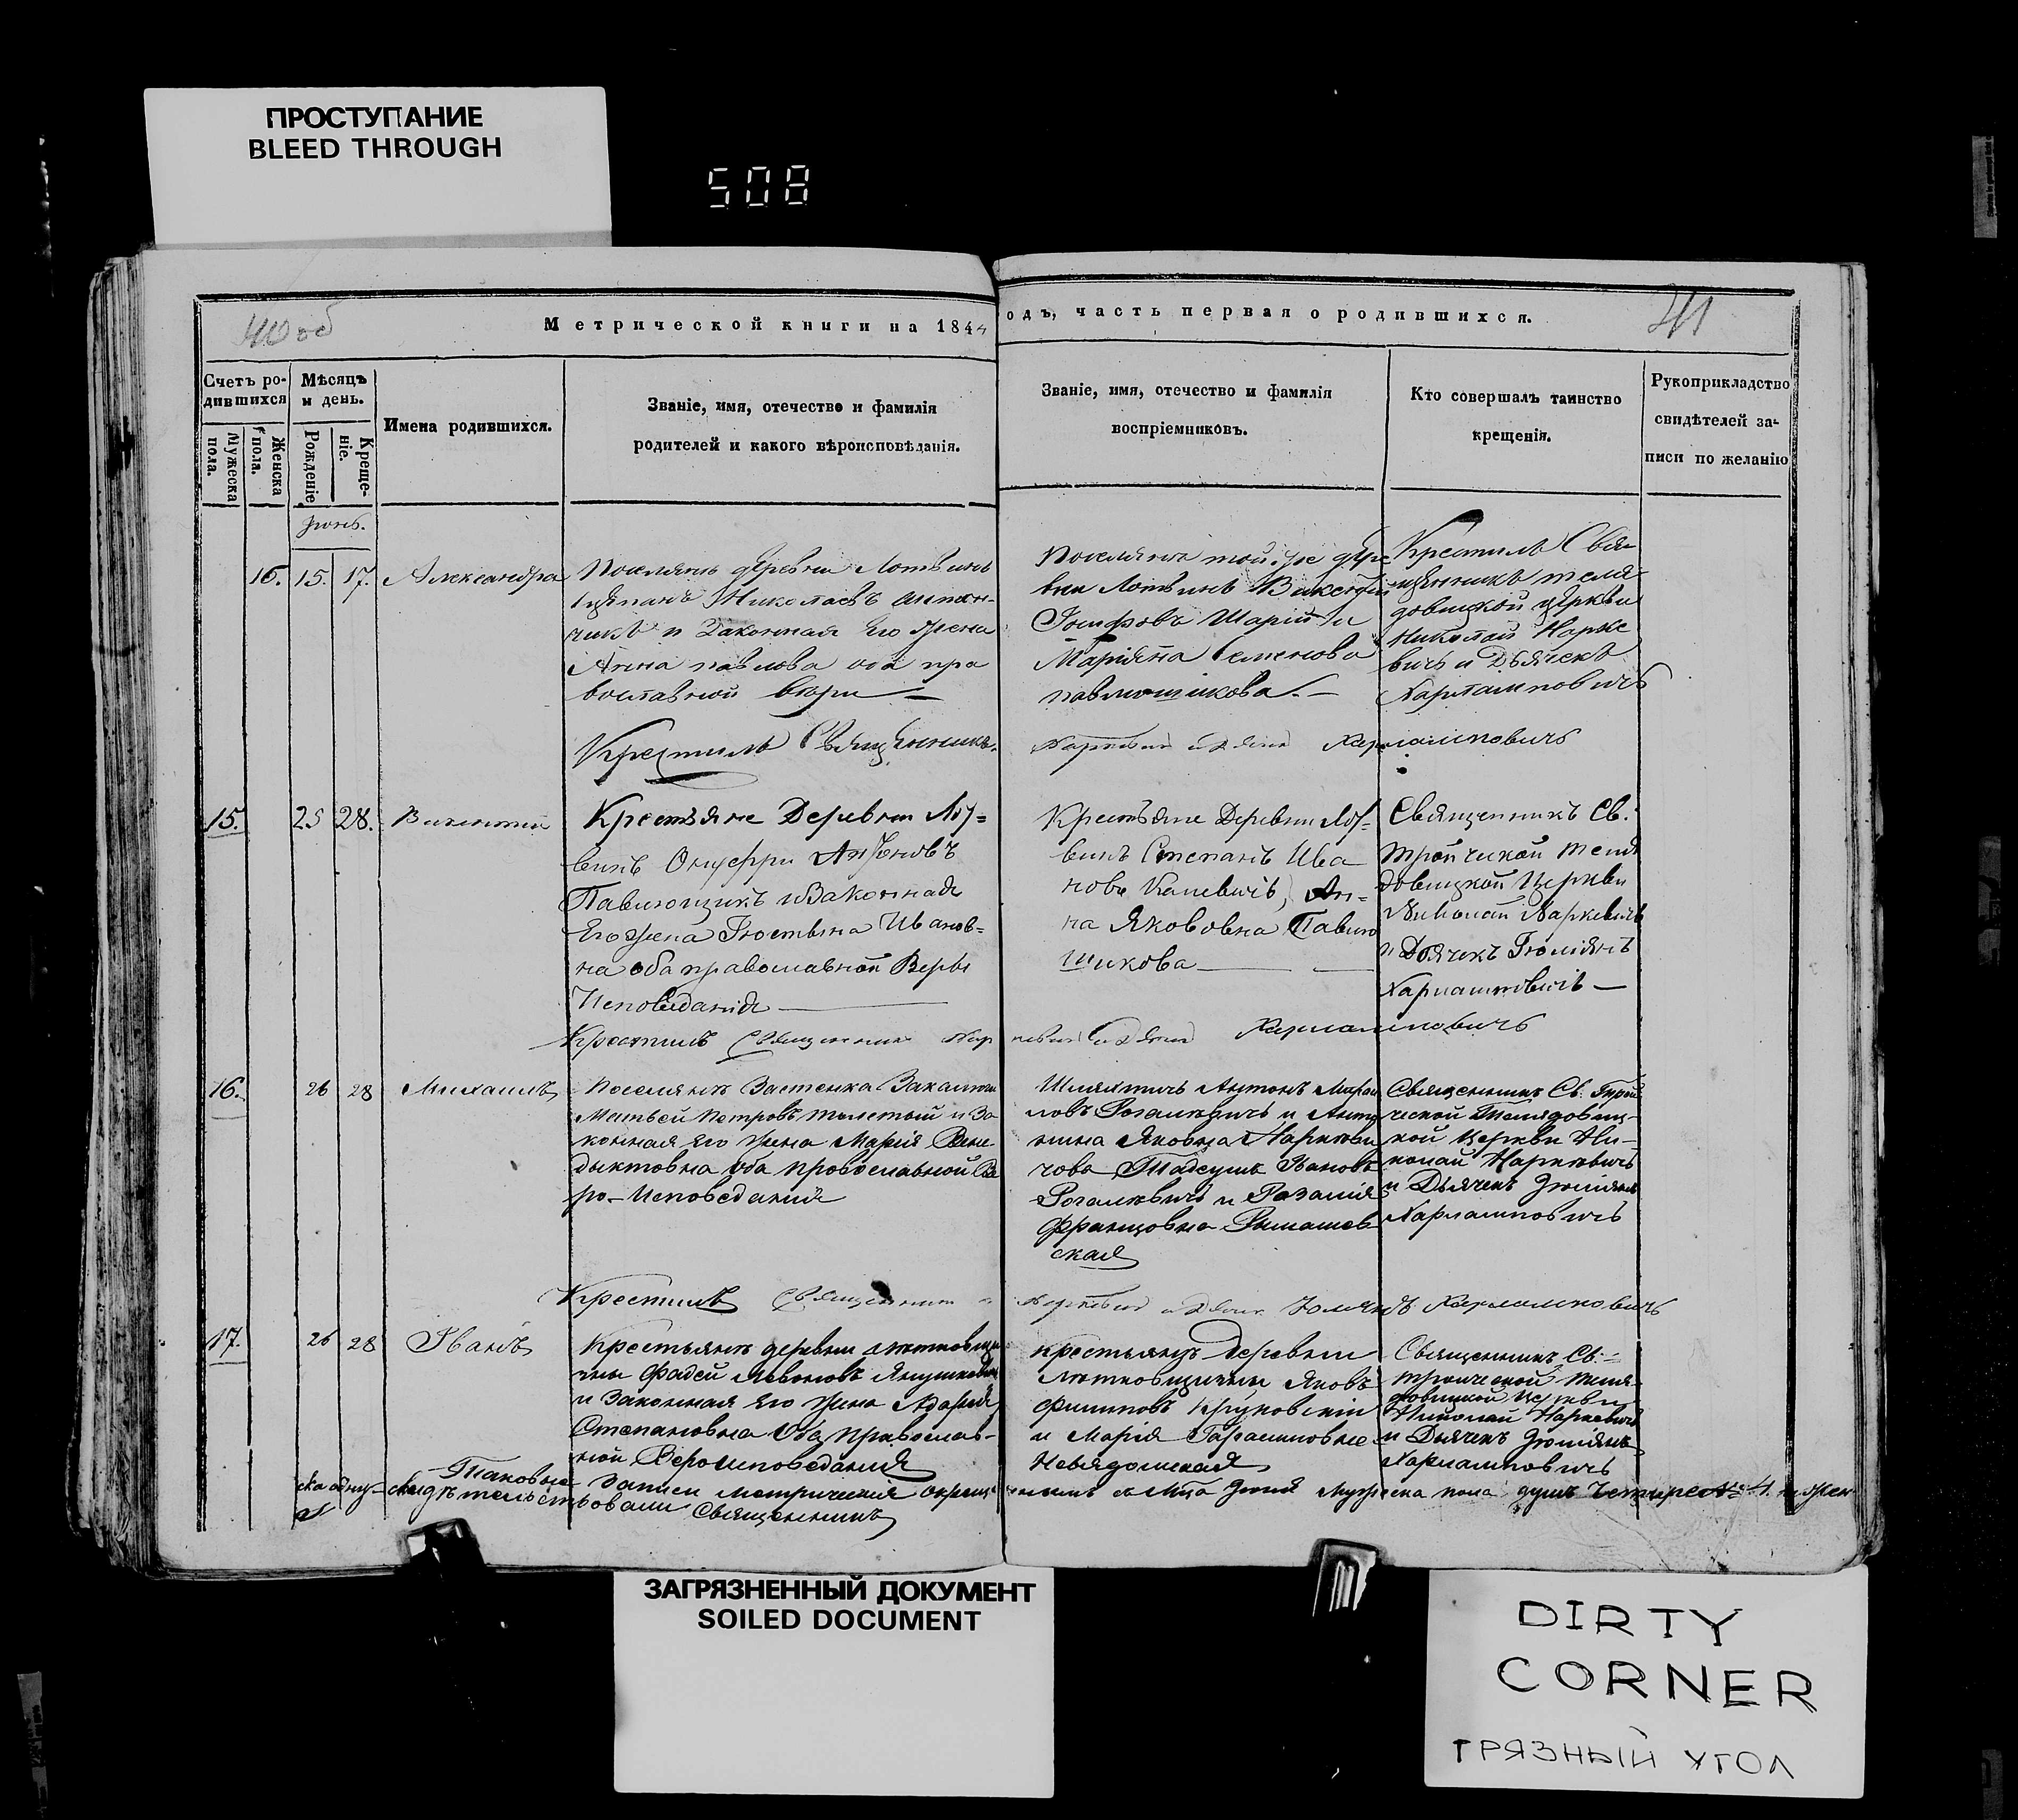 ПРОСТУПАНИЕ
BLEED THROUGH
508
40 об
Метрической книги на 1844
одъ, часть первая о родившихся.
41
Счетъ ро-
дившихся
Мужеска
пола.
Женска
пола.
Мѣсяцъ
и день.
Рожденіе
Креще-
ніе.
Имена родившихся.
Званіе, имя, отечество и фамилія
родителей и какого вѣроисповѣданія.
Званіе, имя, отечество и фамилія
воспріемниковъ.
Кто совершалъ таинство
крещенія.
Рукоприкладство
свидѣтелей за-
писи по желанію
Іюнь.
16. 15. 17. Александра
Поселянъ деревни Лотвинъ
Николаевъ
и Законная Его Жена
Анна Павлова оба пра
вославной вѣры
Поселяне той же дере
вни Лотвинъ
Іосифовъ Шарій и
Маріяна Семенова
павлющикова.
Крестилъ Свя-
щенникъ теля
довицкой церкви
Николай Нарке
вичъ и Дьячекъ
Харлампович
Крестилъ Священникъ
Наркевич и Дьяч Харлампович
15. 25 28. Викентій
Крестьяне Деревни Лот=
винъ Онуфри Антоновъ
Павлющикъ и Законная
Его жена Іюстына Иванов=
на оба православной Веры
Исповеданія
Крестьяне Деревни Лот=
винъ Степанъ Ива
новъ Каневичъ, Ан=
на Якововна Павлю
шикова
Священникъ Св.
Тройчиской Теля
довицкой Церкви
Николай Наркевичъ
и Дьячекъ Іюліянъ
Харламповичъ
Крестилъ Священник Нар
кевич и Дьяч Харламповичъ
16. 26 28 Михаилъ
Поселянъ Застенка
Матьвей Петровъ Толстый и За
конная его Жена Марія Вене
дыктовна Оба православной Ве
ро-Исповеданий
Шляхтичъ Антонъ
ловъ Рогалевичъ и Анто
нина Яковна Наркеви
чова Тадеушъ Ивановъ
Рогалевичъ и Розалія
Францовна Рымашев
ская
Священникъ Св. Трой
ческой Телядовиц-
кой Церкви Ни-
колай Наркевичъ
и Дьячекъ Іюліянъ
Харламповичъ
Крестилъ Священник
Наркевич и Дьяч Юліянъ Харламповичъ
17. 26 28 Иванъ
Крестьянъ деревни
чны Фадей Левоновъ Янушкевичъ
и Законная его Жена
Степановна Оба Православ-
ной Вероисповеданія
Крестьянъ Деревни
Яковъ
Филиповъ Круковскій
и Марія
Невядомская
Священникъ Св.
Троической Теля-
довицкой Церкви
Николай Наркевичъ
и Дьячекъ Іюліянъ
Харламповичъ
Таковые Записи Метрическія
Мца Іюня Мужеска пола душъ Четыре № 4. и Жен
ска одну свидѣтельствовали Священникъ
ЗАГРЯЗНЕННЫЙ ДОКУМЕНТ
SOILED DOCUMENT
DIRTY
CORNER
ГРЯЗНЫЙ УГОЛ